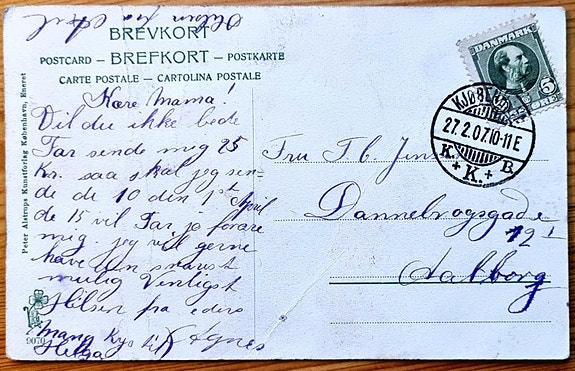 Hilsen fra
BREVKORT
POSTCARD — BREFKORT — POSTKARTE
CARTE POSTALE — CARTOLINA POSTALE
Peter Alstrups Kunstforlag København, Eneret
9070
Kære Mama!
Vil du ikke bede
Far sende mig 25
Kr. saa skal jeg sen-
de de 10 den 1st April
de 15 vil Far jo forære
mig. jeg vil gerne
have dem snarest
mulig Venligst
Hilsen fra eders
Agnes
mang Kys til
Helga
DANMARK
5
ØRE
KJØBENH
27.2.07.10-11E
K. K. B.
Fru Th. Jensen
Dannebrogsgade
12 1
Aalborg